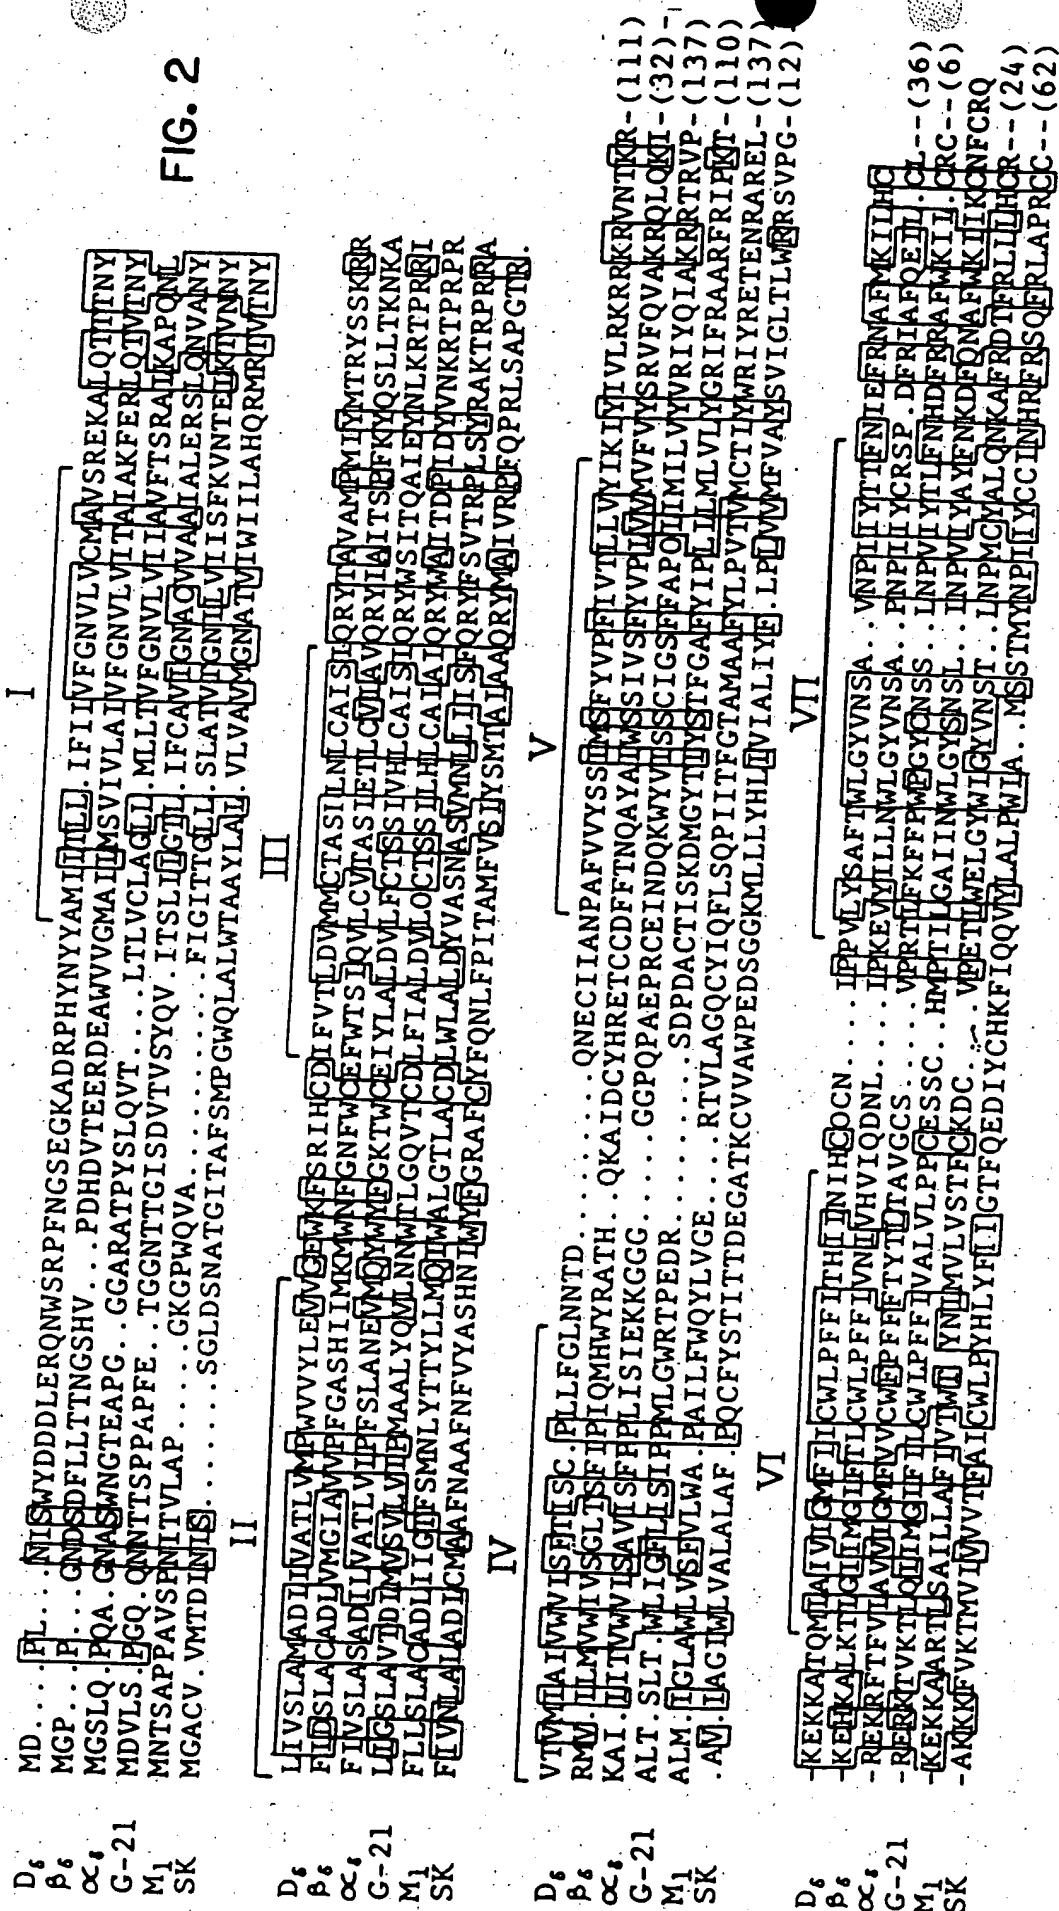 FIG. 2
I
Dδ MD....PL...NISWYDDDLERQNWSRPFNGSEGKADRPHYNYYAMLLTLL.IFIIVFGNVLVCMAVSREKALQTTTNY
βδ MGP...P...GNDSDFLLTTNGSHV...PDHDVTEERDEAWVVGMAILMSVIVLAIVFGNVLVITAIAKFERLQTVTNY
αδ MGSLQ.PQA.GNASWNGTEAPG..GGARATPYSLQVT....LTLVCLAGLL.MLLTVFGNVLVIIAVFTSRALKAPQNL
G-21 MDVLS.PGQ.QNNTTSPPAPFE..TGGNTTGISDVTVSYQV.ITSLLLGTLI.IFCAVIGNACVVAAIALERSLQNVANY
M1 MNTSAPPAVSPNITVLAP....GKGPWQVA..........FIGITTGLL.SLATVTGNILVIISFKVNTELKTVNNY
SK MGACV.VMTDINIS.......SGLDSNATGITAFSMPGWQLALWTAAYLAL.VLVAVMGNATVIWIILAHQRMRTVTNY
II III
Dδ LIVSLAMADLIVATLVMPWVVYLEVVGEWKFSRIHCDIFVTLDVMMCTASILNLCAISLQRYTAVAMPMLYMTRYSSKRR
βδ FIDSLACADLVMGIAVVPFGASHIIMKMWNFGNFWCEFWTSIQVLCVTASIETLCVIAVQRYIAITSPFKYQSLLTKNKA
αδ FIVSLASADILVATLVIPFSLANEVMQYWYFGKTWCEIYLALDVLFCTSSIVHLCAISLQRYWSITQAIEYNLKRTPRRI
G-21 LIGSLAVTDLMVSVLVIPMAALYQVLNNWTLGQVTCDLFIALDVLQCTSSILHLCAIAIQRYWAITDPIDYVNKRTPRPR
M1 FLLSLACADLIIGIFSMNLYTTYLLMQIWALGTLACDLWLALDYVASNASVMNLLIISFQRYFSVTRPLSYRAKTRPRRA
SK FIVNLALADLCMAAFNAAFNFVYASHNIWYFGRAFCYFQNLFPITAMFVSIYSMTAIAAQRYMAIVRPFQPRLSAPGTR.
IV V
Dδ VTVMIAIVWVISFTISC.PLLFGLNNTD.........QNECIIANPAFVVYSSIMSFYVPFIVTLLVYIKIYIVLRKRRKRVNTKR-(111)
βδ RMV.LLMVWIVSGLTSFIPIQMHWYRATH..QKAIDCYHRETCCDFFTNQAYAIWSSIVSFYVPLVVMVFVYSRVFQVAKRQLQKI-(32)-
αδ KAI.IITVWVISAVISFPPLISIEKKGGG.....GGPQPAEPRCEINDQKWYVISSCIGSFFAPCLIMILVYVRIYQIAKRRTRVP-(137)
G-21 ALT.SLT.WLIGFLISIPPMLGWRTPEDR........SDPDACTISKDMGYTIYSTFGAFYIPLLLMLVLYGRIFRAARFRIPKT-(110)
M1 ALM.IGLAWLVSFVLWA.PAILFWQYLVGE....RTVLAGQCYIQFLSQPIITFGTAMAAFYLPVTVMCTLYWRIYRETENRAREL-(137)
SK .AV.IAGIWLVALALAF.PQCFYSTITTDEGATKCVVAWPEDSGGKMLLLYHLIVIALIYF.LPLVVMFVAYSVIGLTLWRRSVPG-(12)
VI VII
Dδ -KEKKATQMLAIVLGMFIICWLPFFITHILNIHCQCN....IPPVLYSAFTWLGYVNSA..VNPIIYTTFNIEFRNAFMKILHC
βδ -KEHKALKTLGIIMGIFTLCWLPFFIVNIVHVIQDNL....IPKEVYILLNWLGYVNSA..PNPIIYCRSP.DFRIAFQEIL.CL--(36)
αδ -REKRFTFVLAVVIGMFVVCWFPFFFTYTLTAVGCS.....VPRTLFKFFFWFGYCNSS..LNPVIYTLFNHDFRRAFWKIL.CRC--(6)
G-21 -RERKTVKTLQIIMGIFILCWLPFFIVALVLPFCESSC..HMPTLLGAIINWLGYSNSL..LNPVIYAYFNKDFQNAFWKIIKCNFCRQ
M1 -KEKKAARTLSAILLAFIVTWTIYNIMVLVSTFCKDC....VPETLWELGYWIGYVNST..LNPMCYALQNKAFRDTFRLLLHCR--(24)
SK -AKKKFVKTMVIVVVTFAICWLPYHLYFIIGTFQEDIYCHKFIQQVYLALPWLA..MSSTMYNPIIYCCINHRFRSQFRLAPRCC--(62)